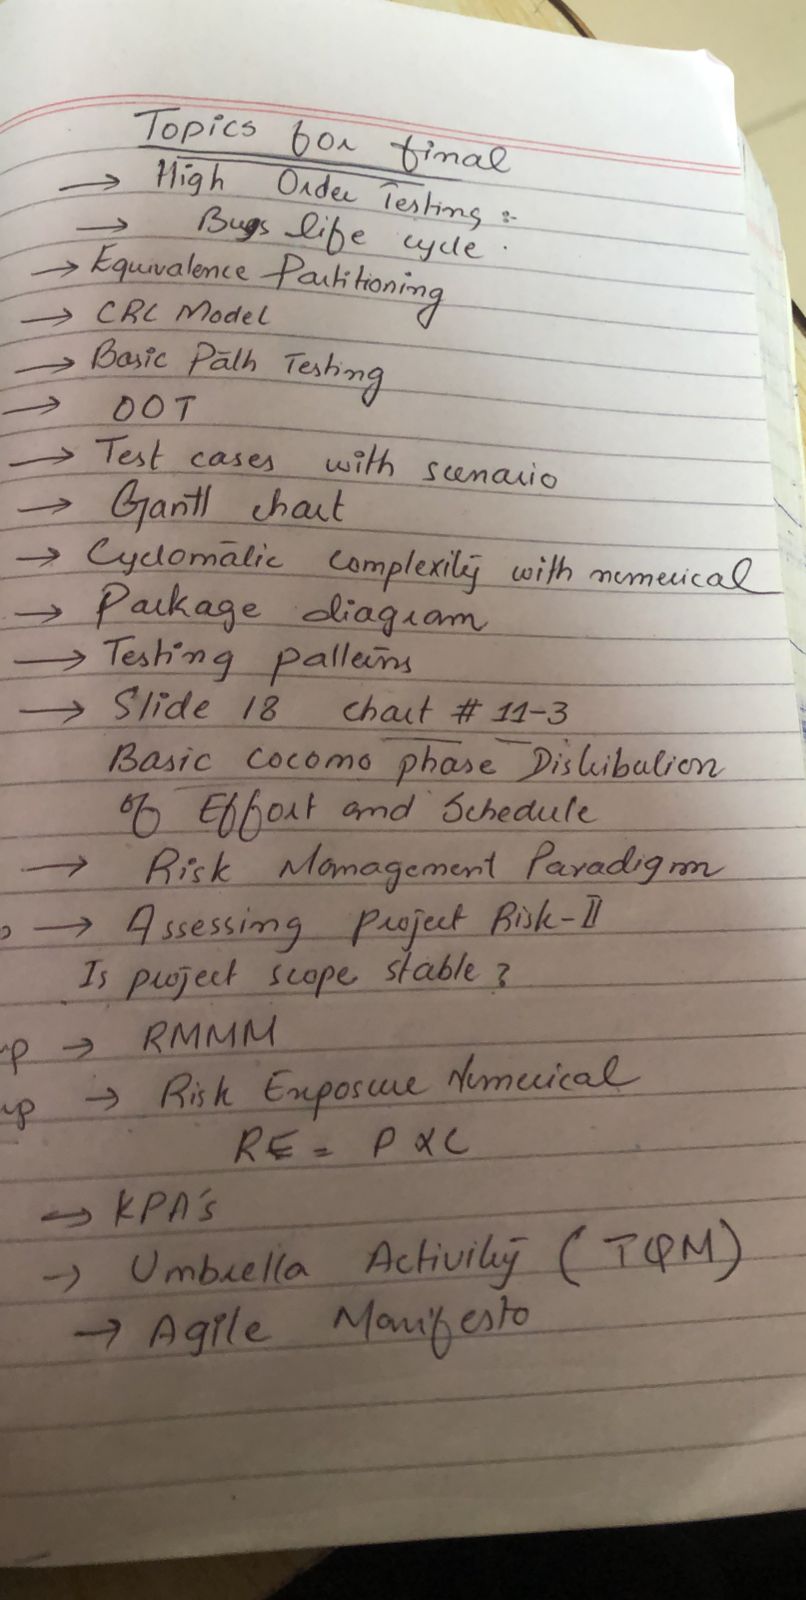 Topics for final
→ High Order Testing :-
→ Bugs life cycle .
→ Equivalence Partitioning
→ CRC Model
→ Basic Path Testing
→ OOT
→ Test cases with scenario
→ Gantt chart
→ Cyclomatic complexity with numerical
→ Package diagram
→ Testing patterns
→ Slide 18 chart # 11-3
Basic cocomo phase Distribution
of Effort and Schedule
→ Risk Management Paradigm
→ Assessing project Risk-II
Is project scope stable ?
→ RMMM
→ Risk Exposure Numerical
RE = P x C
→ KPA's
→ Umbrella Activity (TQM)
→ Agile Manifesto